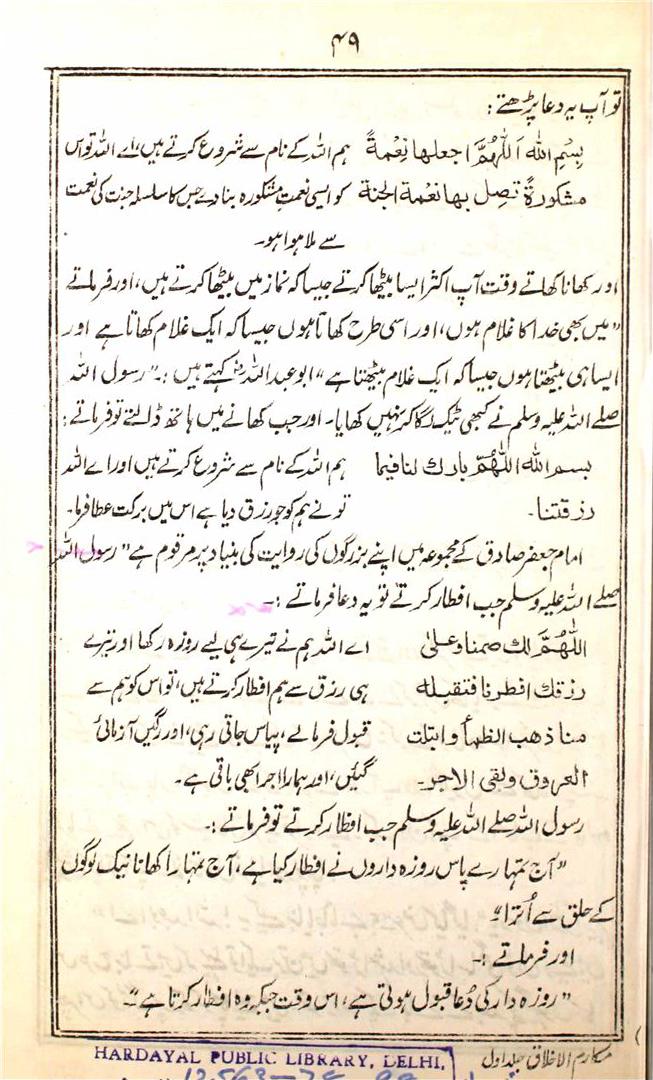 ۴۹
تو آپ یہ دعا پڑھتے :
بِسْمِ اللہ اَللّٰھُمَّ اجعلھا نِعْمۃً ہم اللہ کے نام سے شروع کرتے ہیں، اے اللہ تو اس
مشکورۃً تصِل بھا نعْمۃ الجنۃ کو ایسی نعمتِ مشکورہ بنا دے جس کا سلسلہ جنت کی نعمت
سے ملا ہوا ہو۔
اور کھانا کھاتے وقت آپ اکثر ایسا بیٹھا کرتے جیسا کہ نماز میں بیٹھا کرتے ہیں، اور فرماتے
”میں بھی خدا کا غلام ہوں، اور اسی طرح کھاتا ہوں جیسا کہ ایک غلام کھاتا ہے اور
ایسا ہی بیٹھتا ہوں جیسا کہ ایک غلام بیٹھتا ہے“ ابو عبد اللہؓ کہتے ہیں :۔ ”رسول اللہ
صلے اللہ علیہ وسلم نے کبھی ٹیک لگا کر نہیں کھایا۔ اور جب کھانے میں ہاتھ ڈالتے تو فرماتے :
بسم اللہ اللّٰھُمّ بارك لنا فیما ہم اللہ کے نام سے شروع کرتے ہیں اور اے اللہ
رزقتنا۔ تو نے ہم کو جو رزق دیا ہے اس میں برکت عطا فرما۔
امام جعفر صادق کے مجموعہ میں اپنے بزرگوں کی روایت کی بنیاد پر مرقوم ہے ”رسول اللہ
صلے اللہ علیہ وسلم جب افطار کرتے تو یہ دعا فرماتے :۔
اللّٰھُمَّ لك صمنا وعلیٰ اے اللہ ہم نے تیرے ہی لیے روزہ رکھا اور تیرے
رزقك افطرنا فتقبلہ ہی رزق سے ہم افطار کرتے ہیں، تو اس کو ہم سے
منا ذھب الظمأ وابتلت قبول فرمالے، پیاس جاتی رہی، اور رگیں آزمائی
العروق وبقی الاجر۔ گئیں، اور ہمارا اجر ابھی باقی ہے۔
رسول اللہ صلے اللہ علیہ وسلم جب افطار کرتے تو فرماتے :۔
”آج تمہارے پاس روزہ داروں نے افطار کیا ہے، آج تمہارا کھانا نیک لوگوں
کے حلق سے اُترا“
اور فرماتے :۔
”روزہ دار کی دُعا قبول ہوتی ہے، اس وقت جبکہ وہ افطار کرتا ہے“
مکارم الاخلاق جلد اول
HARDAYAL PUBLIC LIBRARY, DELHI,